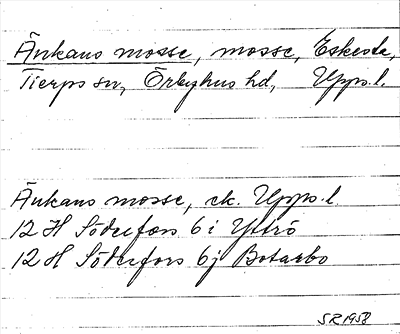 Änkans mosse, mosse, Eskesta,
Tierps sn, Örbyhus hd, Upps.l.
Änkans mosse, ek. Upps.l
12 H Söderfors 6 i Yttrö
12 H Söderfors 6j Botarbo
SR 1958